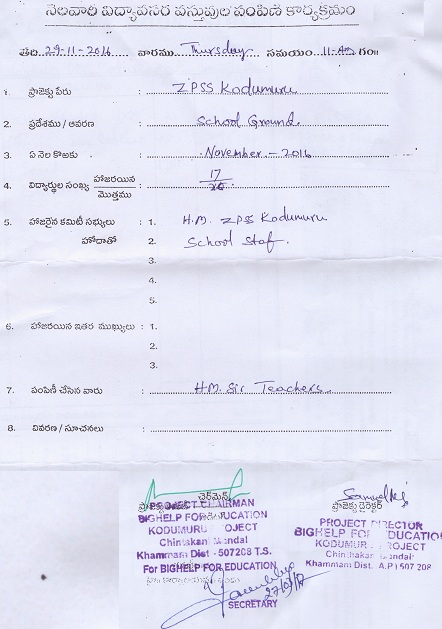 నెలవారి విద్యావసర వస్తువుల పంపిణి కార్యక్రమం
తేది. 29-11-2016 వారము Thursday సమయం 11-AM గం॥
1. ప్రాజెక్టు పేరు : ZPSS Kodumuru
2. ప్రదేశము / ఆవరణ : School Ground.
3. ఏ నెల కొఱకు : November - 2016
4. విద్యార్థుల సంఖ్య హాజరయిన / మొత్తము : 17/20
5. హాజరైన కమిటీ సభ్యులు : 1. H.M. ZPSS Kodumuru
హోదాతో 2. School Staf.
3.
4.
5.
6. హాజరయిన ఇతర ముఖ్యులు : 1.
2.
3.
7. పంపిణీ చేసిన వారు : H.M. Sir Teachers
8. వివరణ / సూచనలు :
చైర్మెన్
PROJECT CHAIRMAN
BIGHELP FOR EDUCATION
KODUMURU PROJECT
Chintakani Mandal
Khammam Dist - 507208 T.S.
For BIGHELP FOR EDUCATION
27/01/17
SECRETARY
ప్రాజెక్టు డైరెక్టర్
PROJECT DIRECTOR
BIGHELP FOR EDUCATION
KODUMUR PROJECT
Chinthakani Mandal
Khammam Dist. A.P) 507 208